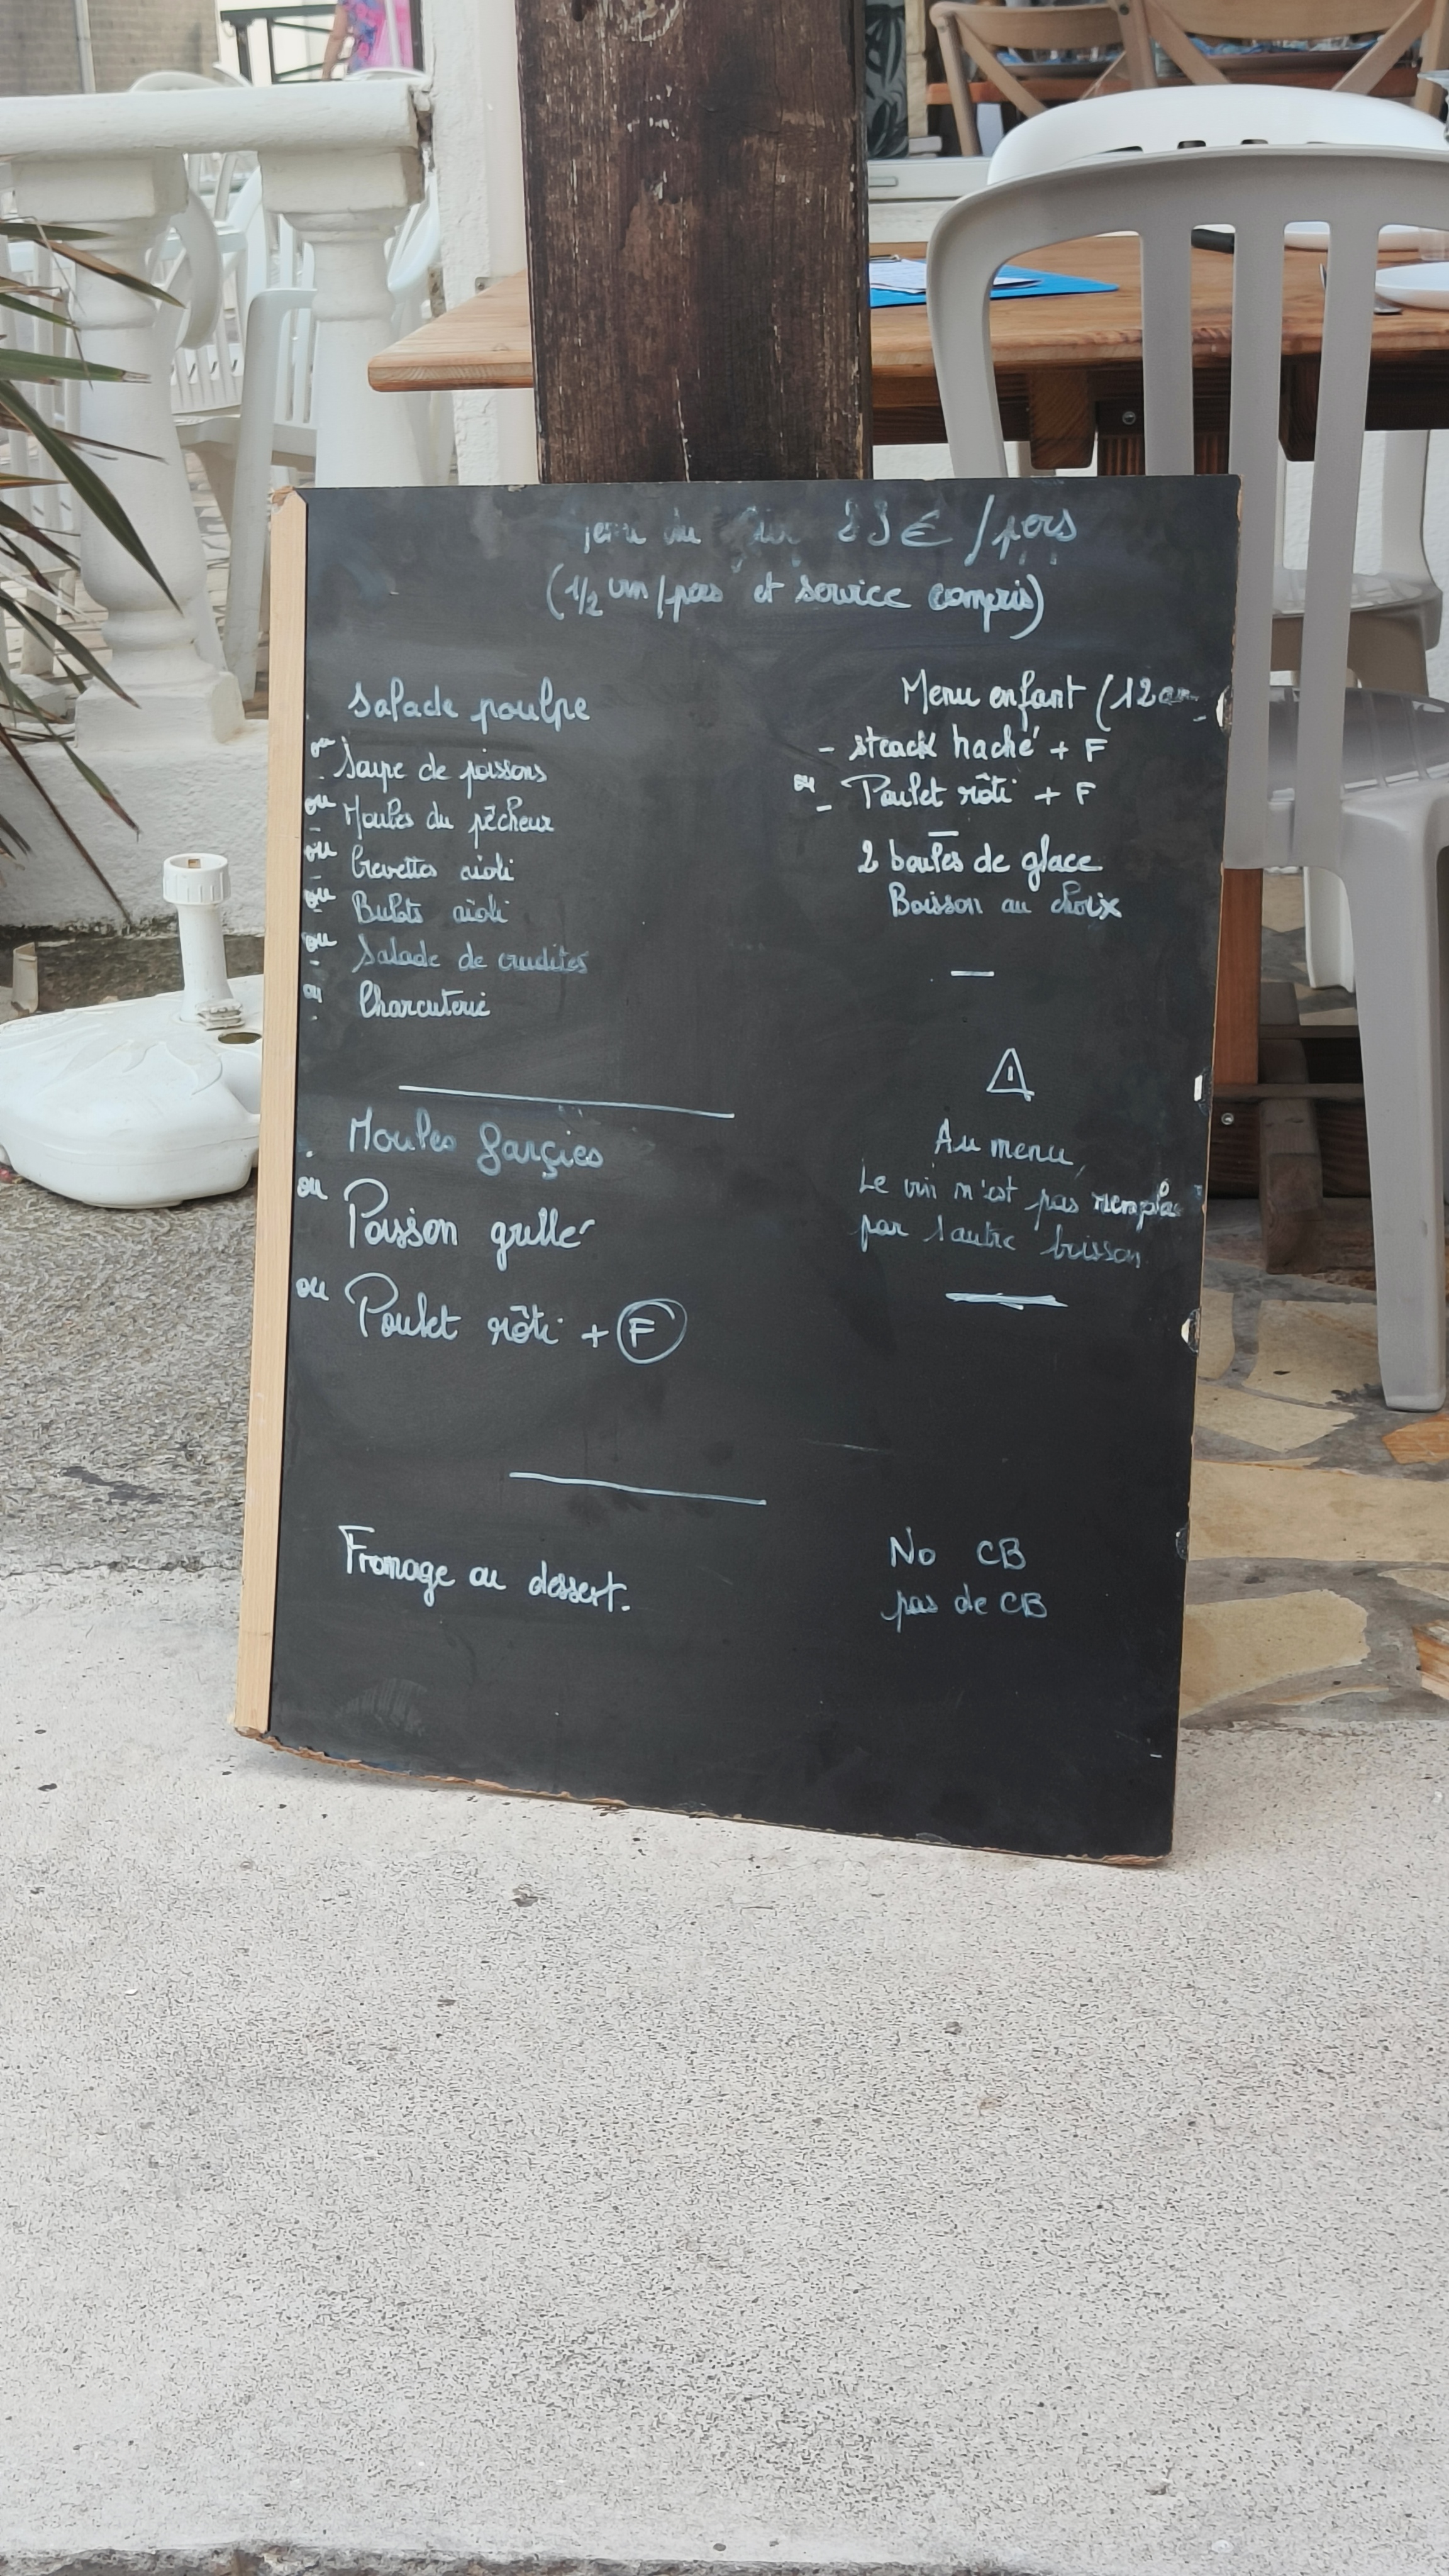 menu du /pers
(1/2 vin/pers et service compris)
Salade poulpe
ou
- Soupe de poissons
ou
- Moules du pêcheur
ou
- Crevettes aïoli
ou
- Bulots aïoli
ou
- Salade de crudités
ou
- Charcuterie
. Moules farçies
ou
Poisson grillé
ou
Poulet rôti + F
Fromage ou dessert.
Menu enfant (12
- steack haché + F
ou
- Poulet rôti + F
2 boules de glace
Boisson au choix
Au menu,
Le vin n'est pas
par boisson
No CB
pas de CB